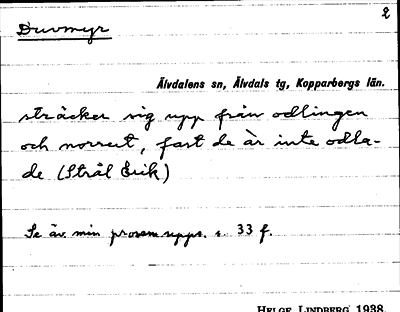 2
Duvmyr
Älvdalens sn, Älvdals tg, Kopparbergs län.
sträcker sig upp från odlingen
och norrut, fast de är inte odla-
de (Strål Erik)
Se äv. min prosemupps. s. 33 f.
HELGE LINDBERG 1938.